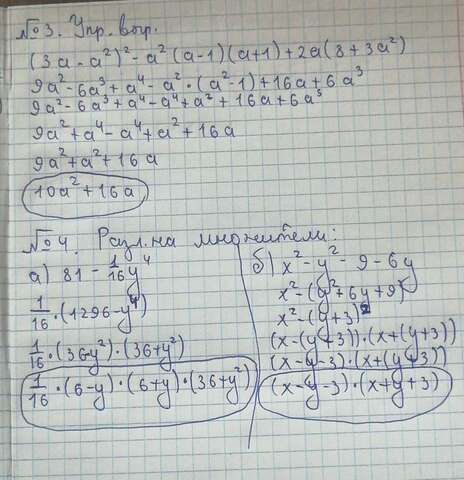 №3. Упр. выр.
(3a - a²)² - a² (a-1)(a+1) + 2a(8 + 3a²)
9a² - 6a³ + a⁴ - a² · (a² - 1) + 16a + 6a³
9a² - 6a³ + a⁴ - a⁴ + a² + 16a + 6a³
9a² + a⁴ - a⁴ + a² + 16a
9a² + a² + 16a
10a² + 16a
№4. Разл. на множители:
а) 81 - 1/16 y⁴
1/16 · (1296 - y⁴)
1/16 · (36 - y²) · (36 + y²)
1/16 · (6 - y) · (6 + y) · (36 + y²)
б) x² - y² - 9 - 6y
x² - (y² + 6y + 9)
x² - (y + 3)²
(x - (y + 3)) · (x + (y + 3))
(x - y - 3) · (x + (y + 3))
(x - y - 3) · (x + y + 3)